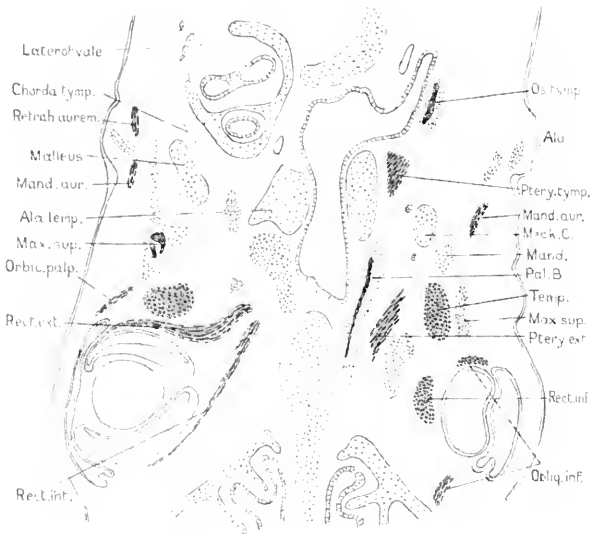 Laterohyale
Chorda tymp.
Retrah aurem.
Malleus
Mand. aur.
Ala temp.
Max. sup.
Orbic. palp.
Rect. ext.
Rect. int.
Os tymp
Ala
Ptery. tymp.
Mand. aur.
Meck. C.
Mand.
Pal. B
Temp.
Max sup.
Ptery ext
Rect. inf
Obliq. inf.